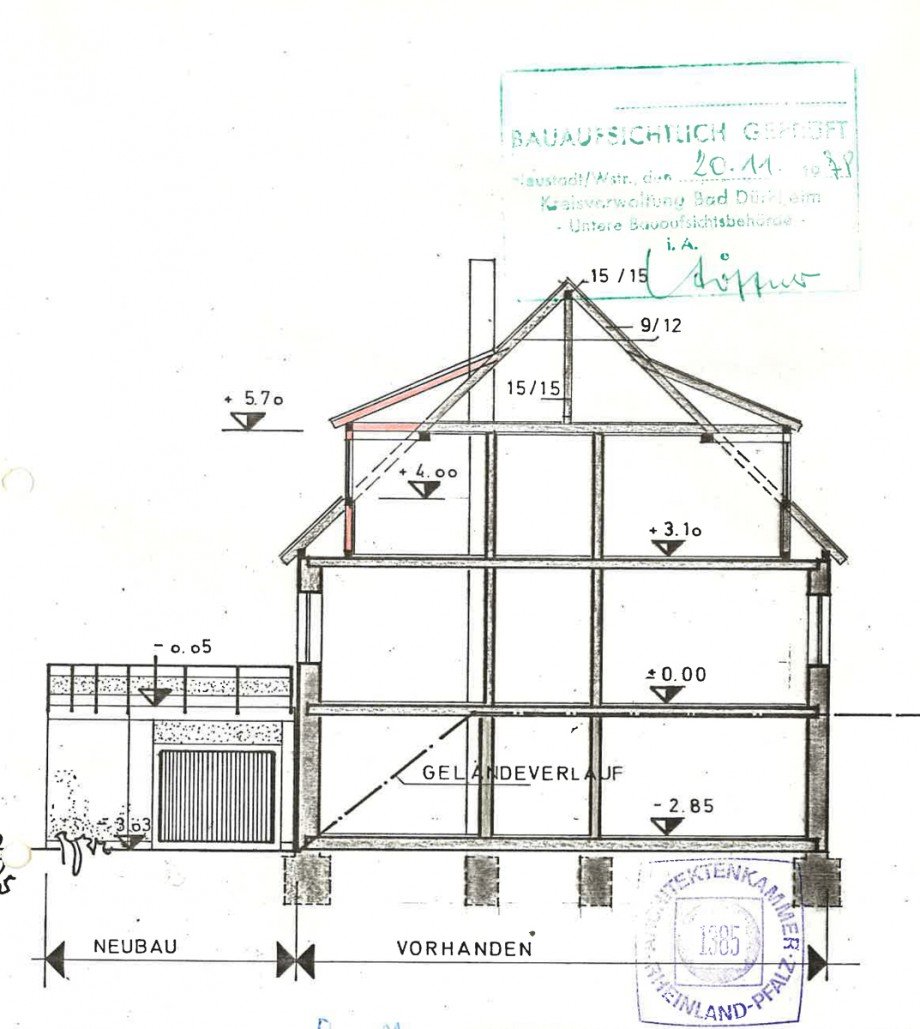 BAUAUFSICHTLICH GEPRÜFT
Neustadt/Wstr., den 20.11. 1978
Kreisverwaltung Bad Dürkheim
- Untere Bauaufsichtsbehörde -
i. A.
15 / 15
9/12
15/15
+ 5.70
+ 4.00
+ 3.10
- 0.05
± 0.00
GELÄNDEVERLAUF
- 2.85
- 3.63
NEUBAU
VORHANDEN
ARCHITEKTENKAMMER
1385
RHEINLAND-PFALZ